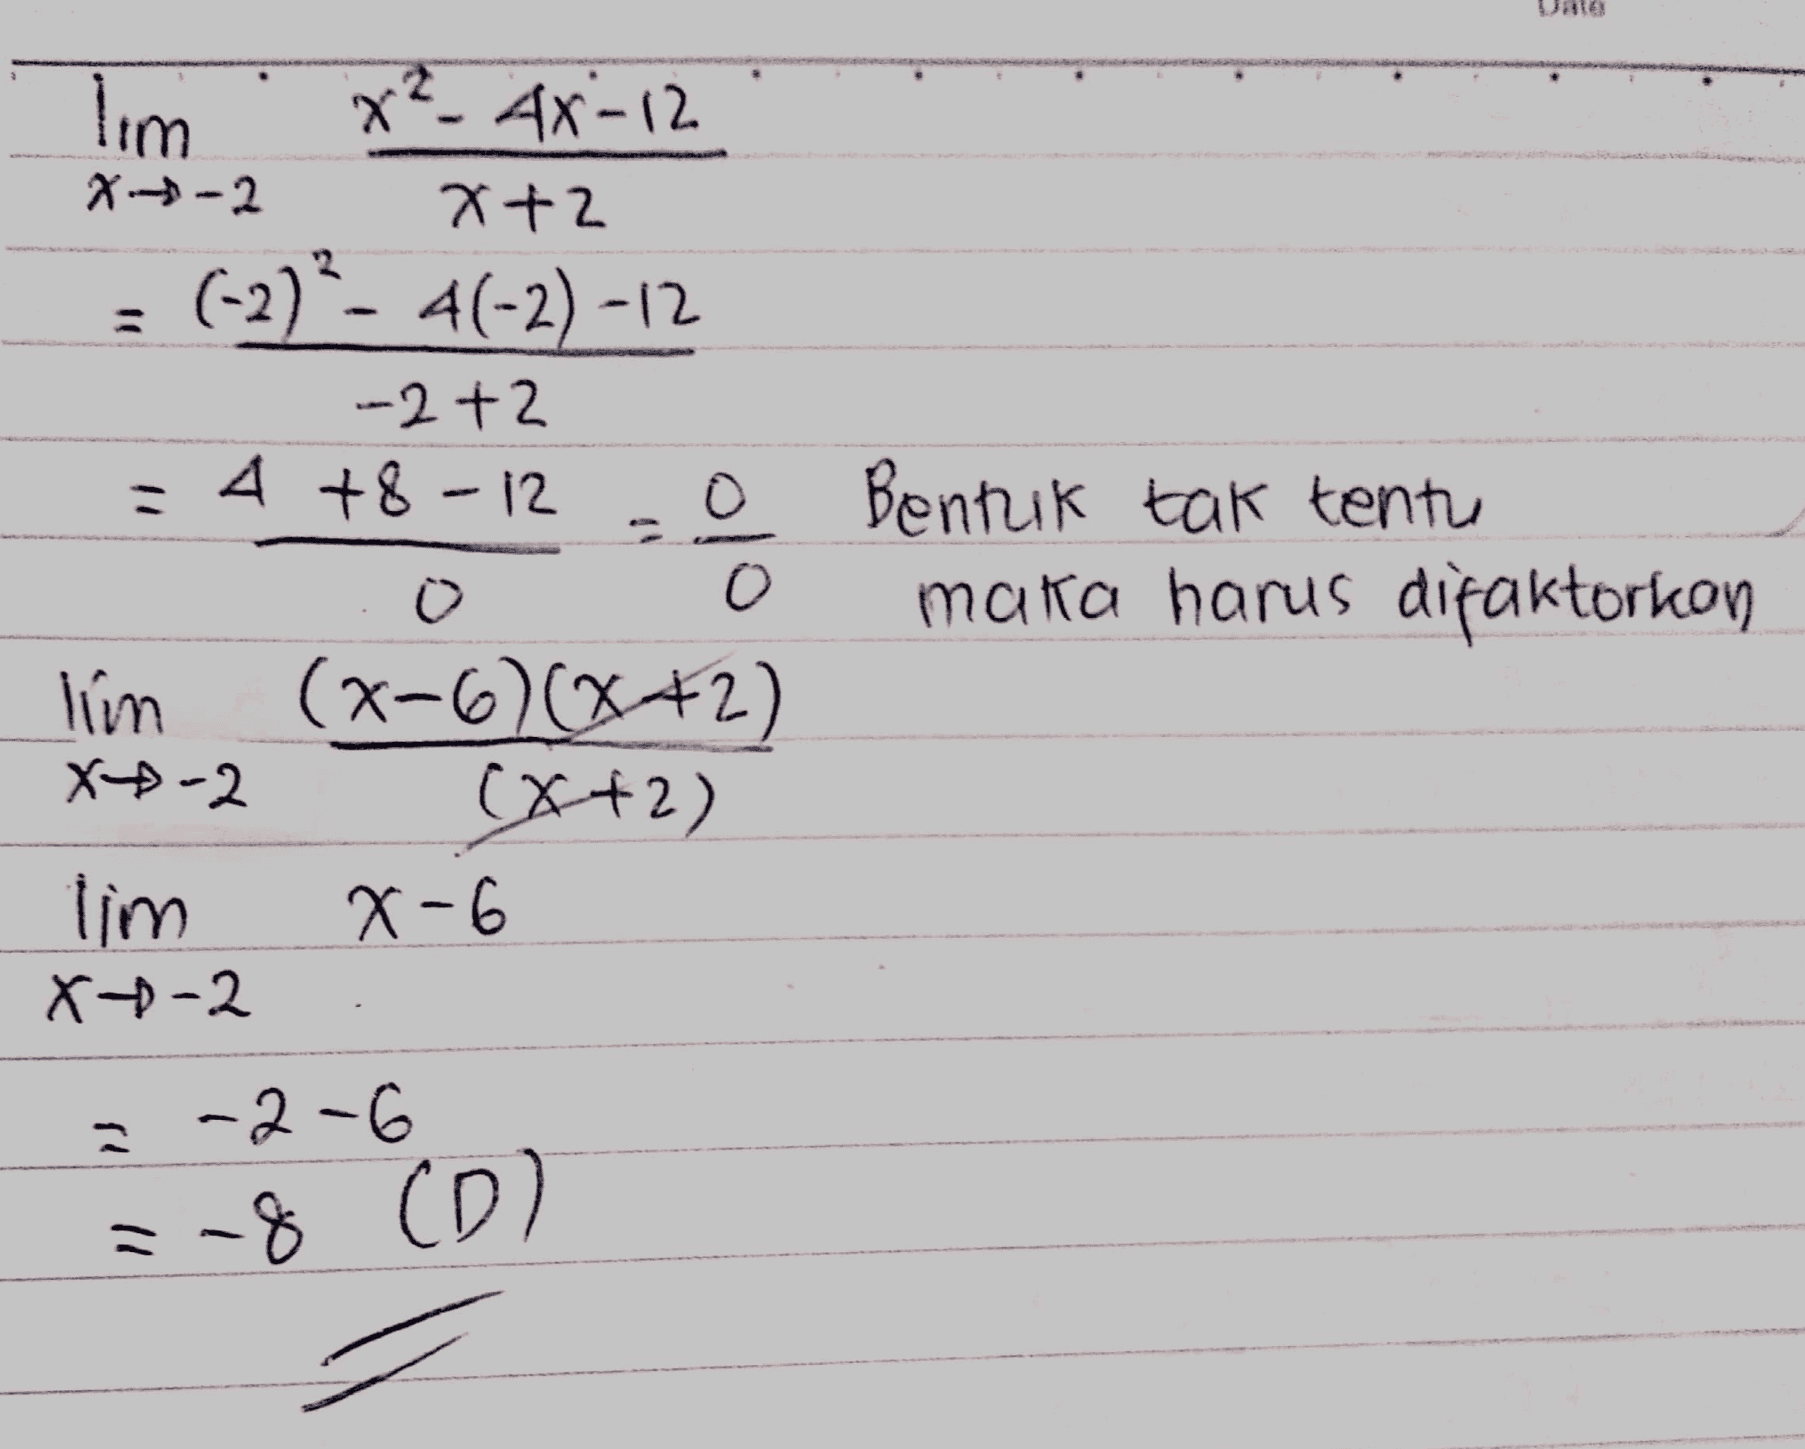 Date
lim x²- 4x-12
x→-2 x+2
= (-2)² - 4(-2) -12
-2+2
= 4 +8-12 = 0 Bentuk tak tentu
0 0 maka harus difaktorkan
lim (x-6)(x+2)
x→-2 (x+2)
lim x-6
x→-2
= -2-6
= -8 (D)